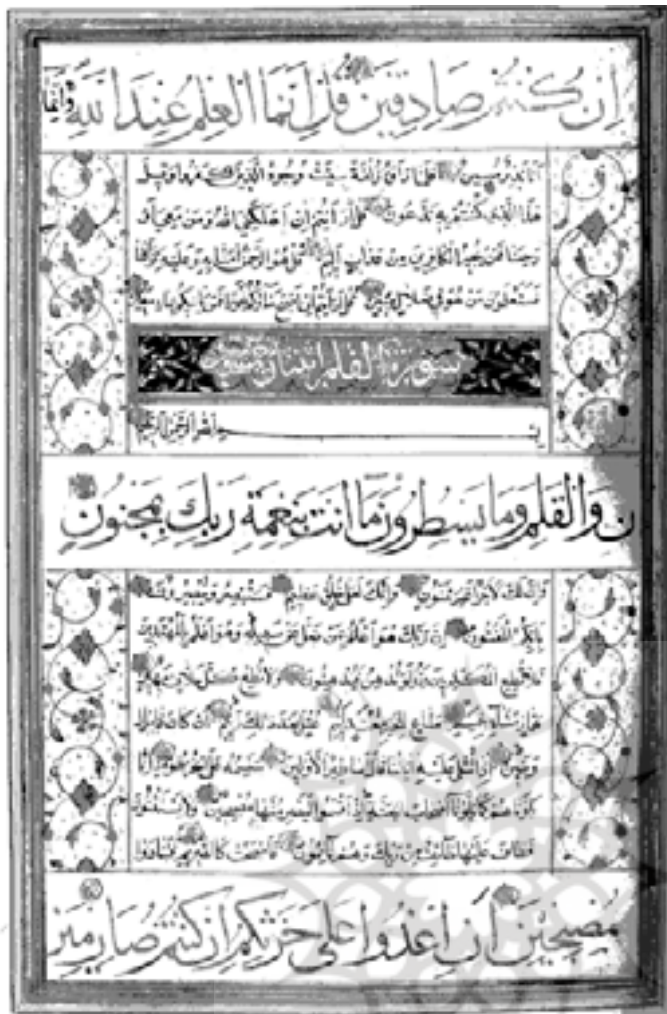 ان كنتم صادقين قل انما العلم عند الله وانما
انا نذير مبين فلما راوه زلفة سيئت وجوه الذين كفروا وقيل
هذا الذي كنتم به تدعون قل ارايتم ان اهلكني الله ومن معي او
رحمنا فمن يجير الكافرين من عذاب اليم قل هو الرحمن امنا به وعليه توكلنا
فستعلمون من هو في ضلال مبين قل ارايتم ان اصبح ماؤكم غورا فمن ياتيكم بماء معين
سورة القلم اثنتان
بسم الله الرحمن الرحيم
ن والقلم وما يسطرون ما انت بنعمة ربك بمجنون
وان لك لاجرا غير ممنون وانك لعلى خلق عظيم فستبصر ويبصرون
بايكم المفتون ان ربك هو اعلم بمن ضل عن سبيله وهو اعلم بالمهتدين
فلا تطع المكذبين ودوا لو تدهن فيدهنون ولا تطع كل حلاف مهين
هماز مشاء بنميم مناع للخير معتد اثيم عتل بعد ذلك زنيم ان كان ذا مال
وبنين اذا تتلى عليه اياتنا قال اساطير الاولين سنسمه على الخرطوم انا
بلوناهم كما بلونا اصحاب الجنة اذ اقسموا ليصرمنها مصبحين ولا يستثنون
فطاف عليها طائف من ربك وهم نائمون فاصبحت كالصريم فتنادوا
مصبحين ان اغدوا على حرثكم ان كنتم صارمين